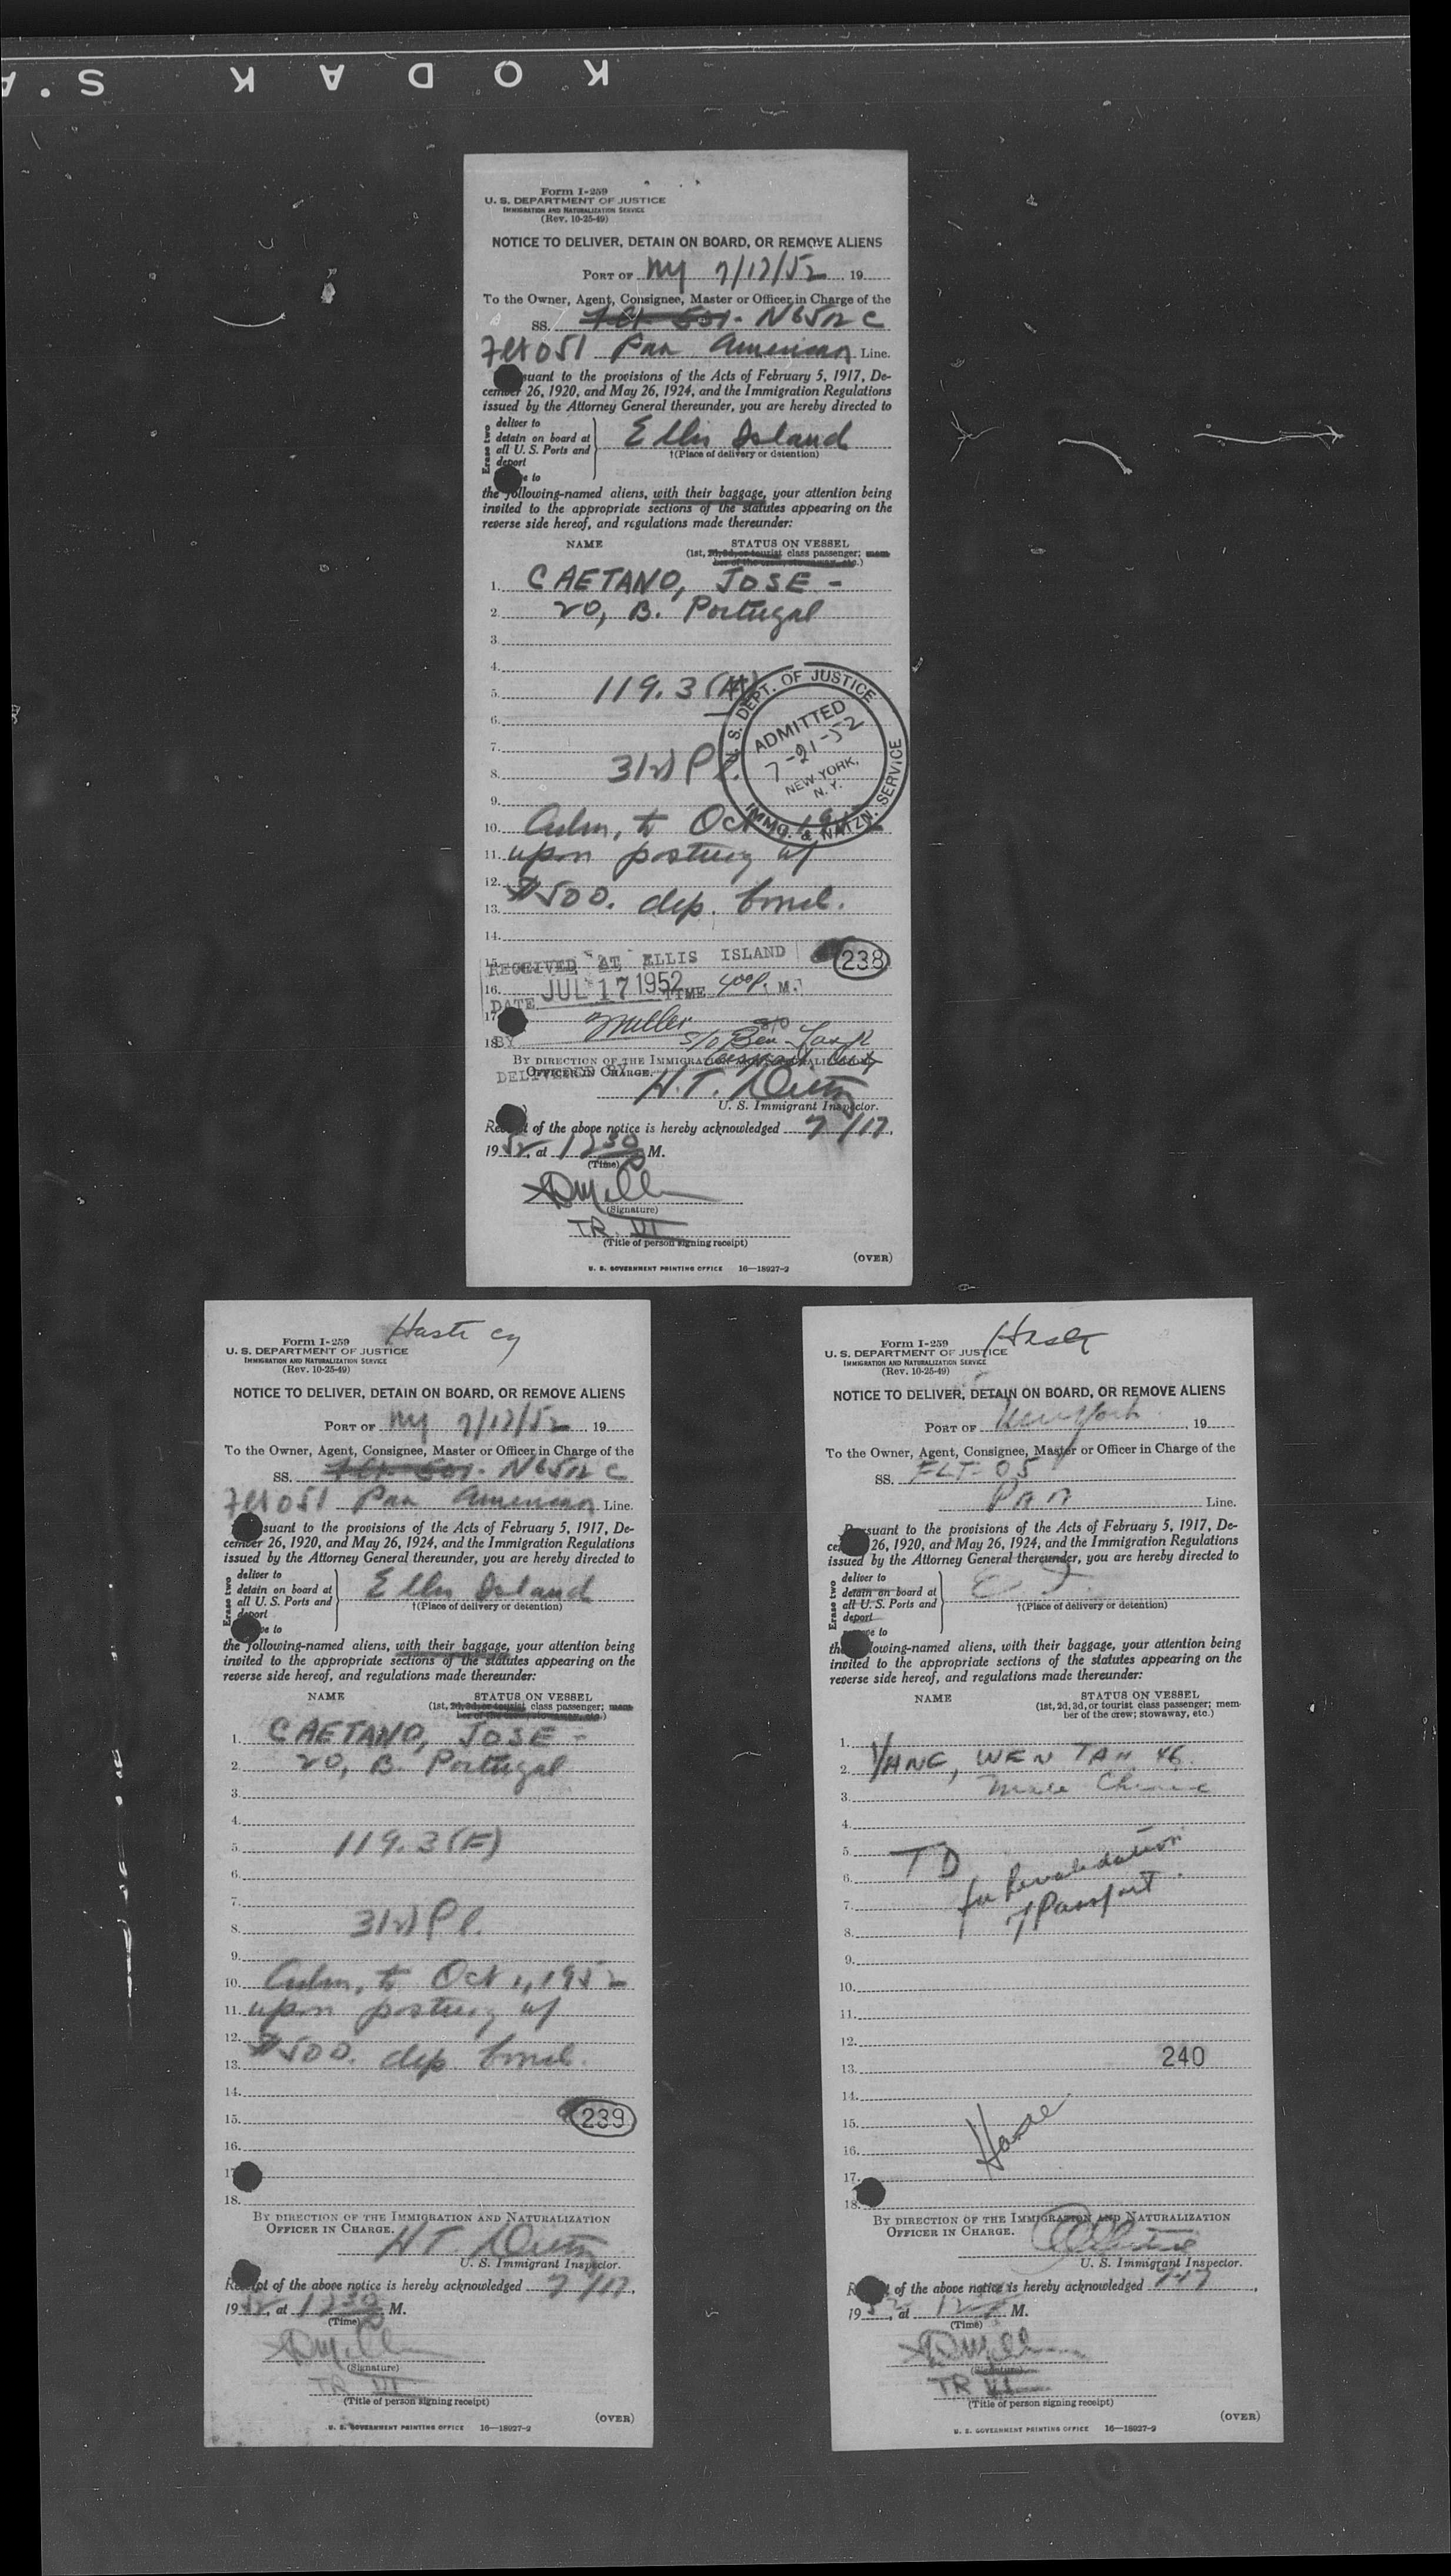 KODAK S.A
Form I-259
U. S. DEPARTMENT OF JUSTICE
IMMIGRATION AND NATURALIZATION SERVICE
(Rev. 10-25-49)
NOTICE TO DELIVER, DETAIN ON BOARD, OR REMOVE ALIENS
PORT OF NY 7/17/52 19
To the Owner, Agent, Consignee, Master or Officer in Charge of the
SS. N6512C
Flt 051 Pan American Line.
suant to the provisions of the Acts of February 5, 1917, De-
cember 26, 1920, and May 26, 1924, and the Immigration Regulations
issued by the Attorney General thereunder, you are hereby directed to
Erase two
deliver to
detain on board at
all U. S. Ports and
deport
e to
Ellis Island
†(Place of delivery or detention)
the following-named aliens, with their baggage, your attention being
invited to the appropriate sections of the statutes appearing on the
reverse side hereof, and regulations made thereunder:
NAME STATUS ON VESSEL
(1st, 2d, 3d, or tourist class passenger; mem-
ber of the crew; stowaway, etc.)
1. CAETANO, JOSE -
2. 20, B. Portugal
3.
4.
5. 119.3
6.
7.
8. 3(2) Pl.
9.
10. Adm. to Oct
11. upon posting of
12. $500. dep. bond.
13.
14.
U. S. DEPT. OF JUSTICE
ADMITTED
7-21-52
NEW YORK,
N. Y.
IMMG. & NATZN. SERVICE
238
15. RECEIVED AT ELLIS ISLAND
16. DATE JUL 17 1952 TIME 400 P. M.
17. Miller
18. BY
BY DIRECTION OF THE IMMIGRATION AND NATURALIZATION
OFFICER IN CHARGE.
DELIVERED BY
H.T.
U. S. Immigrant Inspector.
Receipt of the above notice is hereby acknowledged 7/17,
19 52, at 12 30 M.
(Time)
(Signature)
TR. VI
(Title of person signing receipt)
(OVER)
U. S. GOVERNMENT PRINTING OFFICE 16—18927-2
Form I-259
U. S. DEPARTMENT OF JUSTICE
IMMIGRATION AND NATURALIZATION SERVICE
(Rev. 10-25-49)
NOTICE TO DELIVER, DETAIN ON BOARD, OR REMOVE ALIENS
PORT OF NY 7/17/52 19
To the Owner, Agent, Consignee, Master or Officer in Charge of the
SS. N6512C
Flt 051 Pan American Line.
suant to the provisions of the Acts of February 5, 1917, De-
cember 26, 1920, and May 26, 1924, and the Immigration Regulations
issued by the Attorney General thereunder, you are hereby directed to
Erase two
deliver to
detain on board at
all U. S. Ports and
deport
e to
Ellis Island
†(Place of delivery or detention)
the following-named aliens, with their baggage, your attention being
invited to the appropriate sections of the statutes appearing on the
reverse side hereof, and regulations made thereunder:
NAME STATUS ON VESSEL
(1st, 2d, 3d, or tourist class passenger; mem-
ber of the crew; stowaway, etc.)
1. CAETANO, JOSE -
2. 20, B. Portugal
3.
4.
5. 119.3(F)
6.
7.
8. 3(2) Pl.
9.
10. Adm. to Oct 1, 1952
11. upon posting of
12. $500. dep. bond.
13.
14.
15. 239
16.
17.
18.
BY DIRECTION OF THE IMMIGRATION AND NATURALIZATION
OFFICER IN CHARGE.
H.T.
U. S. Immigrant Inspector.
Receipt of the above notice is hereby acknowledged 7/17,
19 52, at 12 30 M.
(Time)
(Signature)
TR VI
(Title of person signing receipt)
(OVER)
U. S. GOVERNMENT PRINTING OFFICE 16—18927-2
Form I-259
U. S. DEPARTMENT OF JUSTICE
IMMIGRATION AND NATURALIZATION SERVICE
(Rev. 10-25-49)
NOTICE TO DELIVER, DETAIN ON BOARD, OR REMOVE ALIENS
PORT OF New York, 19
To the Owner, Agent, Consignee, Master or Officer in Charge of the
SS. FLT-05
Line.
Pursuant to the provisions of the Acts of February 5, 1917, De-
26, 1920, and May 26, 1924, and the Immigration Regulations
issued by the Attorney General thereunder, you are hereby directed to
Erase two
deliver to
detain on board at
all U. S. Ports and
deport
e to
E I.
†(Place of delivery or detention)
the following-named aliens, with their baggage, your attention being
invited to the appropriate sections of the statutes appearing on the
reverse side hereof, and regulations made thereunder:
NAME STATUS ON VESSEL
(1st, 2d, 3d, or tourist class passenger; mem-
ber of the crew; stowaway, etc.)
1.
2. YANG, WEN TAH 46.
3. Male Chinese
4.
5. TD
6. for Revalidation
7. of Passport.
8.
9.
10.
11.
12.
13. 240
14.
15.
16.
17.
18.
BY DIRECTION OF THE IMMIGRATION AND NATURALIZATION
OFFICER IN CHARGE.
U. S. Immigrant Inspector.
of the above notice is hereby acknowledged 7-17,
19 , at 12 M.
(Time)
(Signature)
TR VI
(Title of person signing receipt)
(OVER)
U. S. GOVERNMENT PRINTING OFFICE 16—18927-2